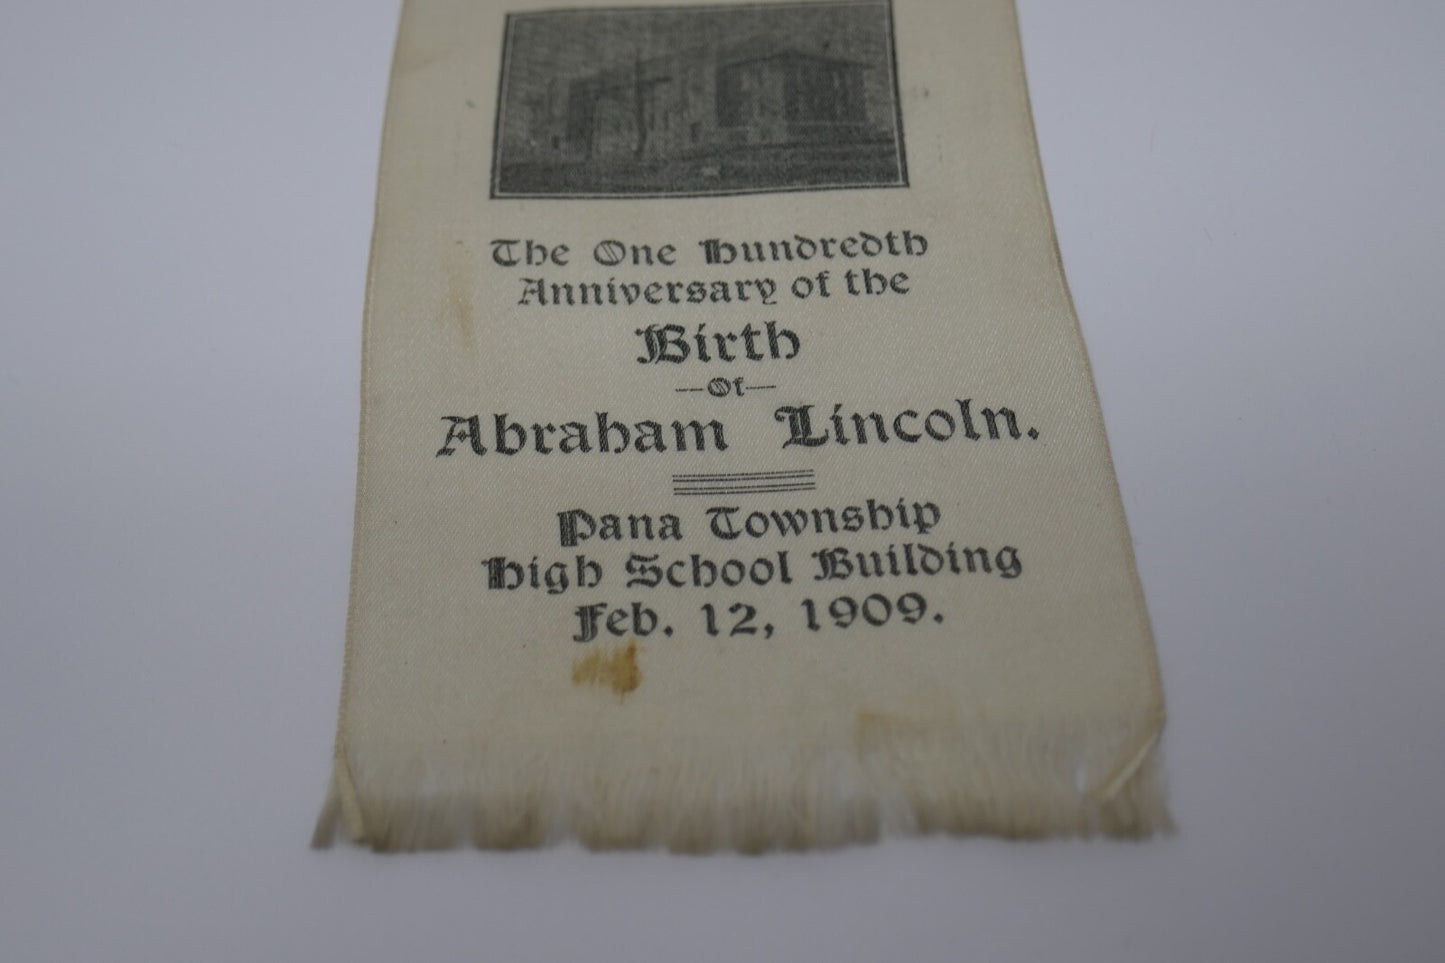 The One Hundredth
Anniversary of the
Birth
—Of—
Abraham Lincoln.
Pana Township
High School Building
Feb. 12, 1909.